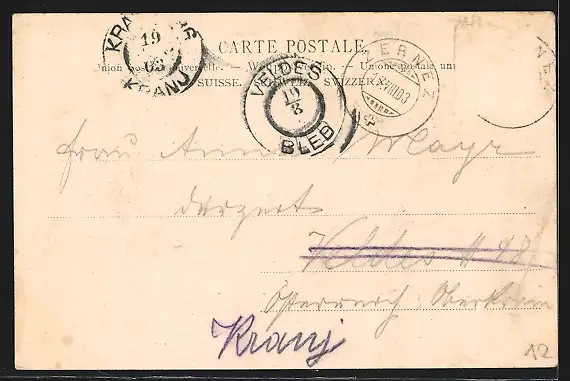 CARTE POSTALE.
Union postale universelle. — Weltpostvereine. — Unione postale uni
SUISSE. SVIZZERA
KRANJ
19
03
KRANJ
VELDES
19
8
BLED
ZERNEZ
VIII.03
NEZ
Frau Anna Mayr
derzeit
Veldes # 48
Österreich, Oberkrain
Kranj
12